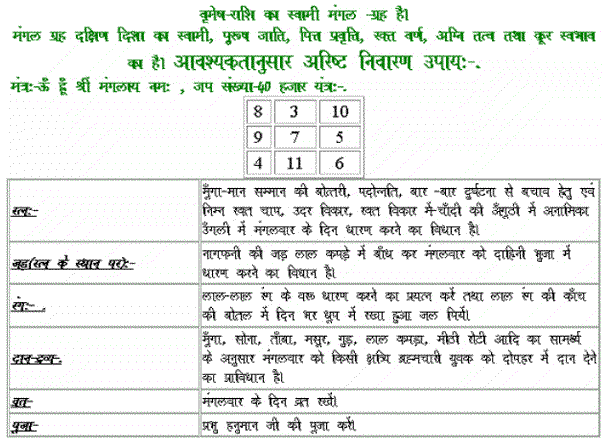 वृमेष-राशि का स्वामी मंगल -ग्रह है।
मंगल ग्रह दक्षिण दिशा का स्वामी, पुरूष जाति, पित्त प्रवृत्ति, रक्त वर्ण, अग्नि तत्व तथा क्रूर स्वभाव
का है। आवश्यकतानुसार अरिष्ट निवारण उपायः-.
मंत्रः-ऊँ हूँ श्रीं मंगलाय नमः , जप संख्या-40 हजार यंत्रः-.
8 3 10
9 7 5
4 11 6
रत्नः-
मूँगा-मान सम्मान की बोत्तरी, पदोन्नति, बार -बार दुर्घटना से बचाव हेतु एवं
निम्न रक्त चाप, उदर विकार, रक्त विकार में-चाँदी की अँगूठी में अनामिका
उँगली में मंगलवार के दिन धारण करने का विधान है।
जड़(रत्न के स्थान पर):-
नागफनी की जड़ लाल कपड़े में बाँध कर मंगलवार को दाहिनी भुजा में
धारण करने का विधान है।
रंगः- .
लाल-लाल रंग के वस्त्र धारण करने का प्रयत्न करें तथा लाल रंग की काँच
की बोतल में दिन भर धूप में रखा हुआ जल पियें।
दान-द्रव्य-.
मूँगा, सोना, ताँबा, मसुर, गुड़, लाल कपड़ा, मीठी रोटी आदि का सामर्थ्य
के अनुसार मंगलवार को किसी क्षत्रि ब्रह्मचारी युवक को दोपहर में दान देने
का प्राविधान है।
व्रत-
मंगलवार के दिन व्रत रखें।
पूजा-
प्रभु हनुमान जी की पूजा करें।